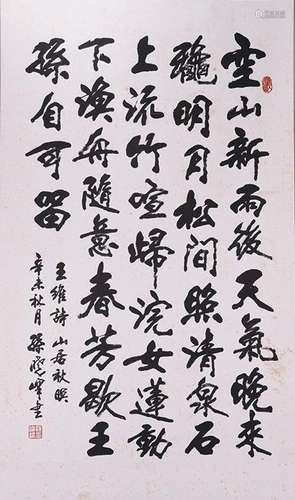 空山新雨後天氣晚來
龝明月松間照清泉石
上流竹喧歸浣女蓮動
下漁舟隨意春芳歇王
孫自可留
王維詩山居秋暝
辛未秋月孫峰書